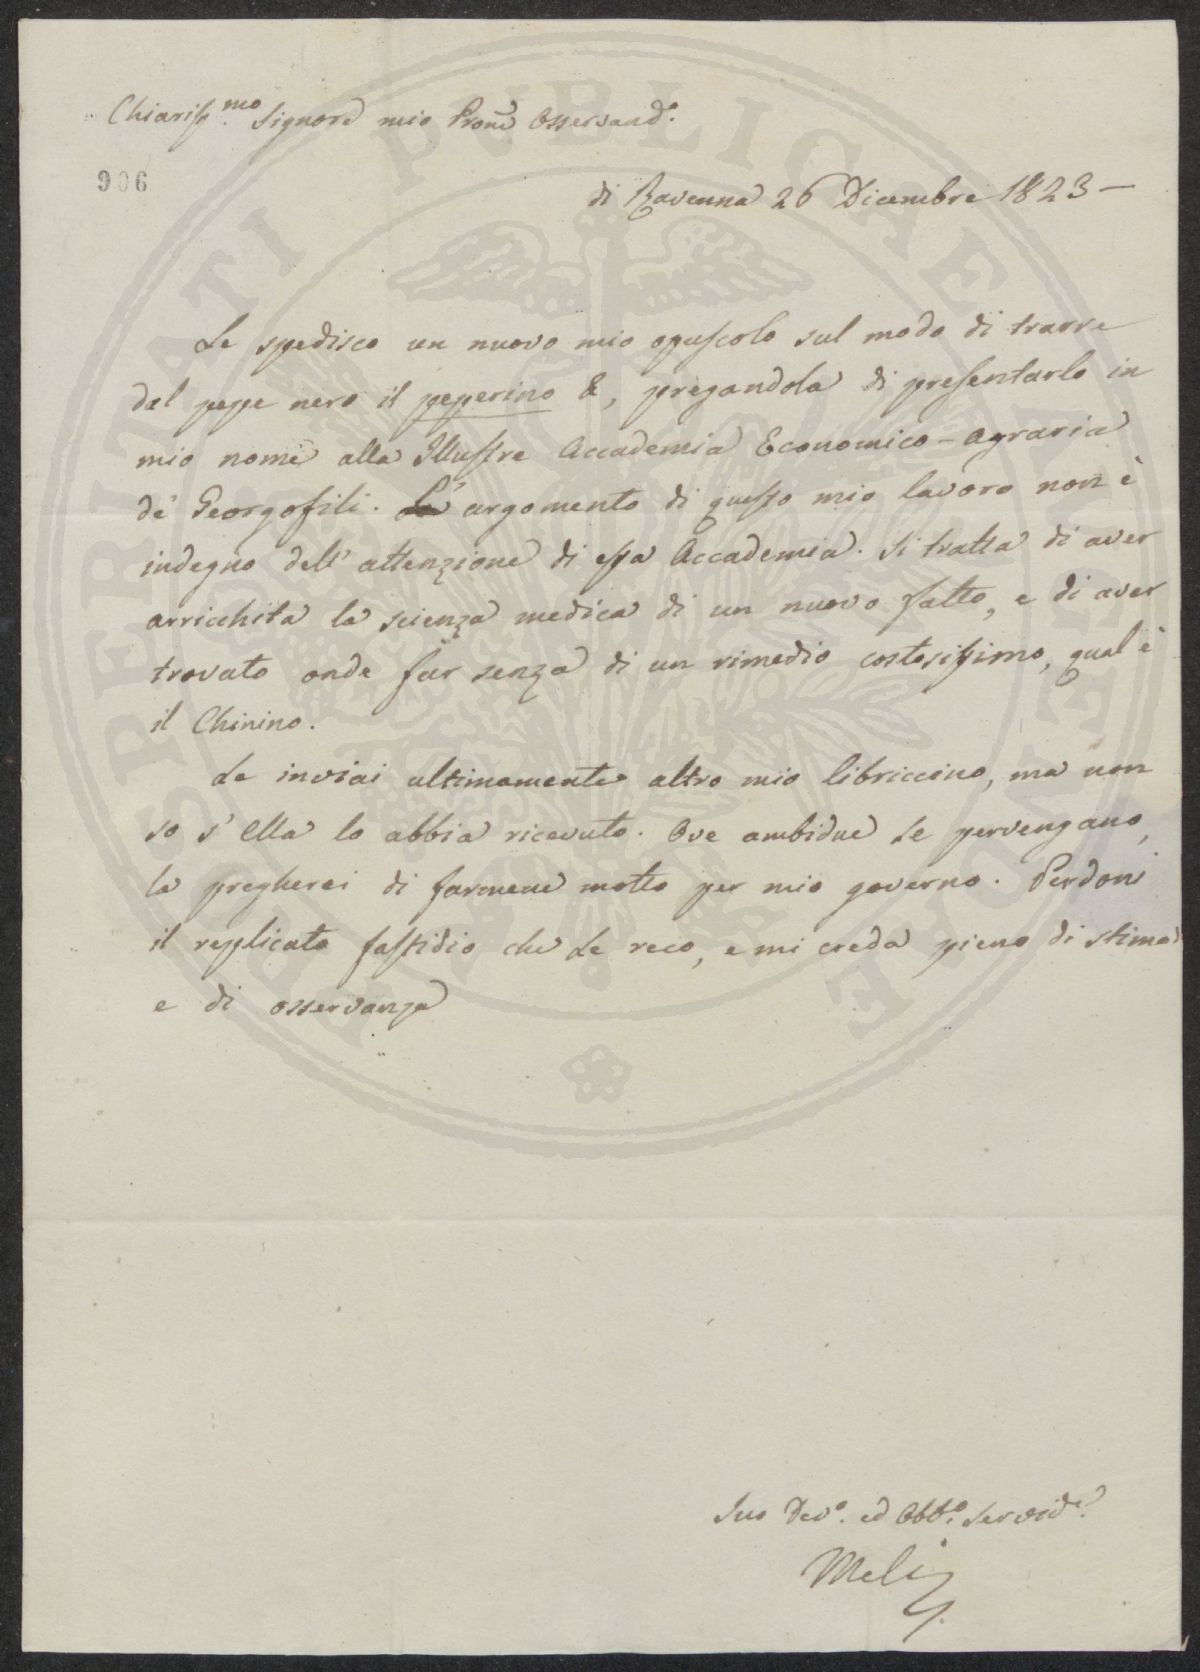 Chiariss.mo Signore mio Prone Osservand.o
906
di Ravenna 26 Dicembre 1823 –
Le spedisco un nuovo mio opuscolo sul modo di trarre
dal pepe nero il peperino &, pregandola di presentarlo in
mio nome alla Illustre Accademia Economico-agraria
de' Georgofili. L'argomento di questo mio lavoro non è
indegno dell'attenzione di essa Accademia. Si tratta di aver
arricchita la scienza medica di un nuovo fatto, e di aver
trovato onde far senza di un rimedio costosissimo, qual è
il Chinino.
Le inviai ultimamente altro mio libriccino, ma non
so s'Ella lo abbia ricevuto. Ove ambidue Le pervengano,
la pregherei di farmene motto per mio governo. Perdoni
il replicato fastidio che Le reco, e mi creda pieno di stima
e di osservanza
Suo Dev.o ed Obb.o Servid.e
Meli
PUBLICAE